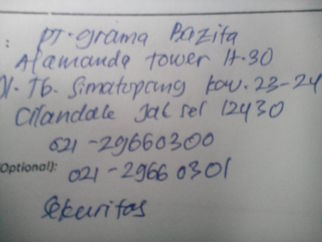 : PT. Grama Bazita
Alamanda Tower lt. 30
Jl. Tb. Simatupang kav. 23-24
Cilandak Jak sel 12430
021-29660300
(Optional): 021-2966 0301
Sekuritas